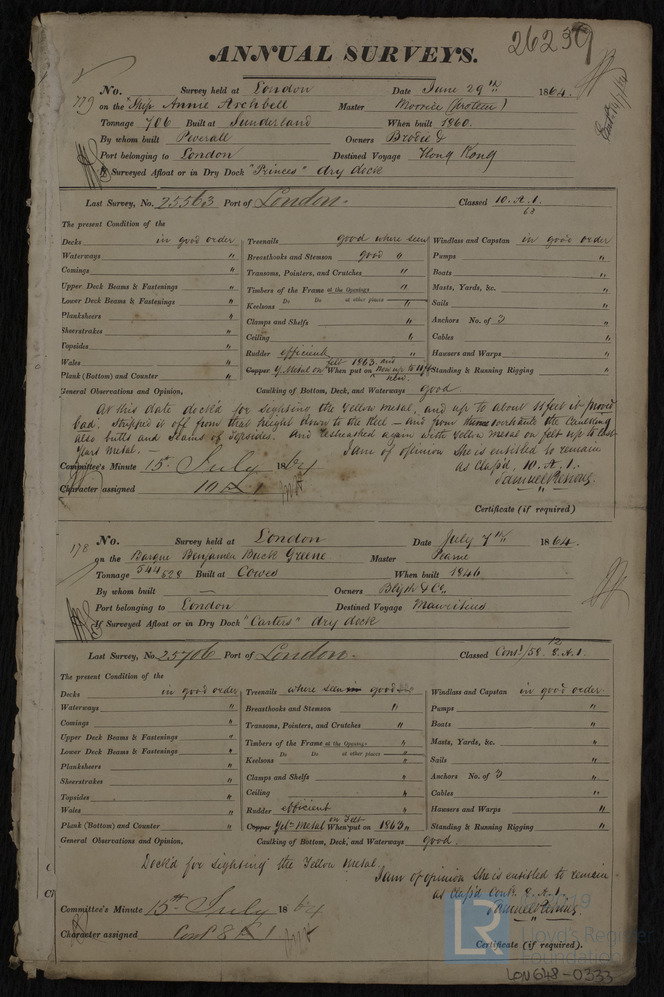 26239
ANNUAL SURVEYS.
No. Survey held at London Date June 29th 1864.
on the Ship Annie Archbell Master Morrice (protem)
Tonnage 706 Built at Sunderland When built 1860.
By whom built Peverall Owners Brodie &
Port belonging to London Destined Voyage Hong Kong
If Surveyed Afloat or in Dry Dock "Princes" dry dock
Last Survey, No. 25563 Port of London. Classed 10. A. 1.
63
The present Condition of the
Decks in good order Treenails good where seen Windlass and Capstan in good order
Waterways " Breasthooks and Stemson good Pumps "
Comings " Transoms, Pointers, and Crutches " Boats "
Upper Deck Beams & Fastenings " Timbers of the Frame at the Openings " Masts, Yards, &c. "
Do Do at other places
Lower Deck Beams & Fastenings " Keelsons Sails "
Planksheers " Clamps and Shelfs " Anchors No. of 3 "
Sheerstrakes " Ceiling " Cables "
Topsides " Rudder efficient " Hawsers and Warps "
Wales " felt 1863 and
Plank (Bottom) and Counter " Copper Y. Metal on When put on now up to Standing & Running Rigging "
new.
General Observations and Opinion, Caulking of Bottom, Deck, and Waterways good
At this date dock'd for sighting the Yellow Metal, and up to about 10 feet it proved
bad. Stripped it off from that height down to the Keel — and from thence overhaul'd the Caulking
also butts and seams of Topsides. And resheathed again with Yellow Metal on felt up to last
Years Metal. —
I am of opinion she is entitled to remain
as Class'd, 10. A. 1.
Committee's Minute 15th July 1864
Character assigned 10 A 1
Certificate (if required)
178 No. Survey held at London Date July 7th 1864.
on the Barque Benjamin Buck Greene Master Pearne
Tonnage 544 528 Built at Cowes When built 1846
By whom built — Owners Blyth & Co.
Port belonging to London Destined Voyage Mauritius
If Surveyed Afloat or in Dry Dock "Carters" dry dock
12
Last Survey, No. 25706 Port of London. Classed Cont/58. 8. A. 1.
The present Condition of the
Decks in good order Treenails where seen good Windlass and Capstan in good order
Waterways " Breasthooks and Stemson " Pumps "
Comings " Transoms, Pointers, and Crutches " Boats "
Upper Deck Beams & Fastenings " Timbers of the Frame at the Openings " Masts, Yards, &c. "
Do Do at other places "
Lower Deck Beams & Fastenings " Keelsons " Sails "
Planksheers " Clamps and Shelfs " Anchors No. of 3 "
Sheerstrakes " Ceiling " Cables "
Topsides " Rudder efficient " Hawsers and Warps "
Wales " on Felt
Plank (Bottom) and Counter " Copper Yel. Metal When put on 1863 " Standing & Running Rigging "
General Observations and Opinion, Caulking of Bottom, Deck, and Waterways good.
Dock'd for sighting the Yellow Metal.
I am of opinion she is entitled to remain
as Class'd Cont. 8. A. 1.
Committee's Minute 15th July 1864
Character assigned Cont 8 A 1
Certificate (if required).
LR
Lloyd's Register
Foundation
LON648-0333